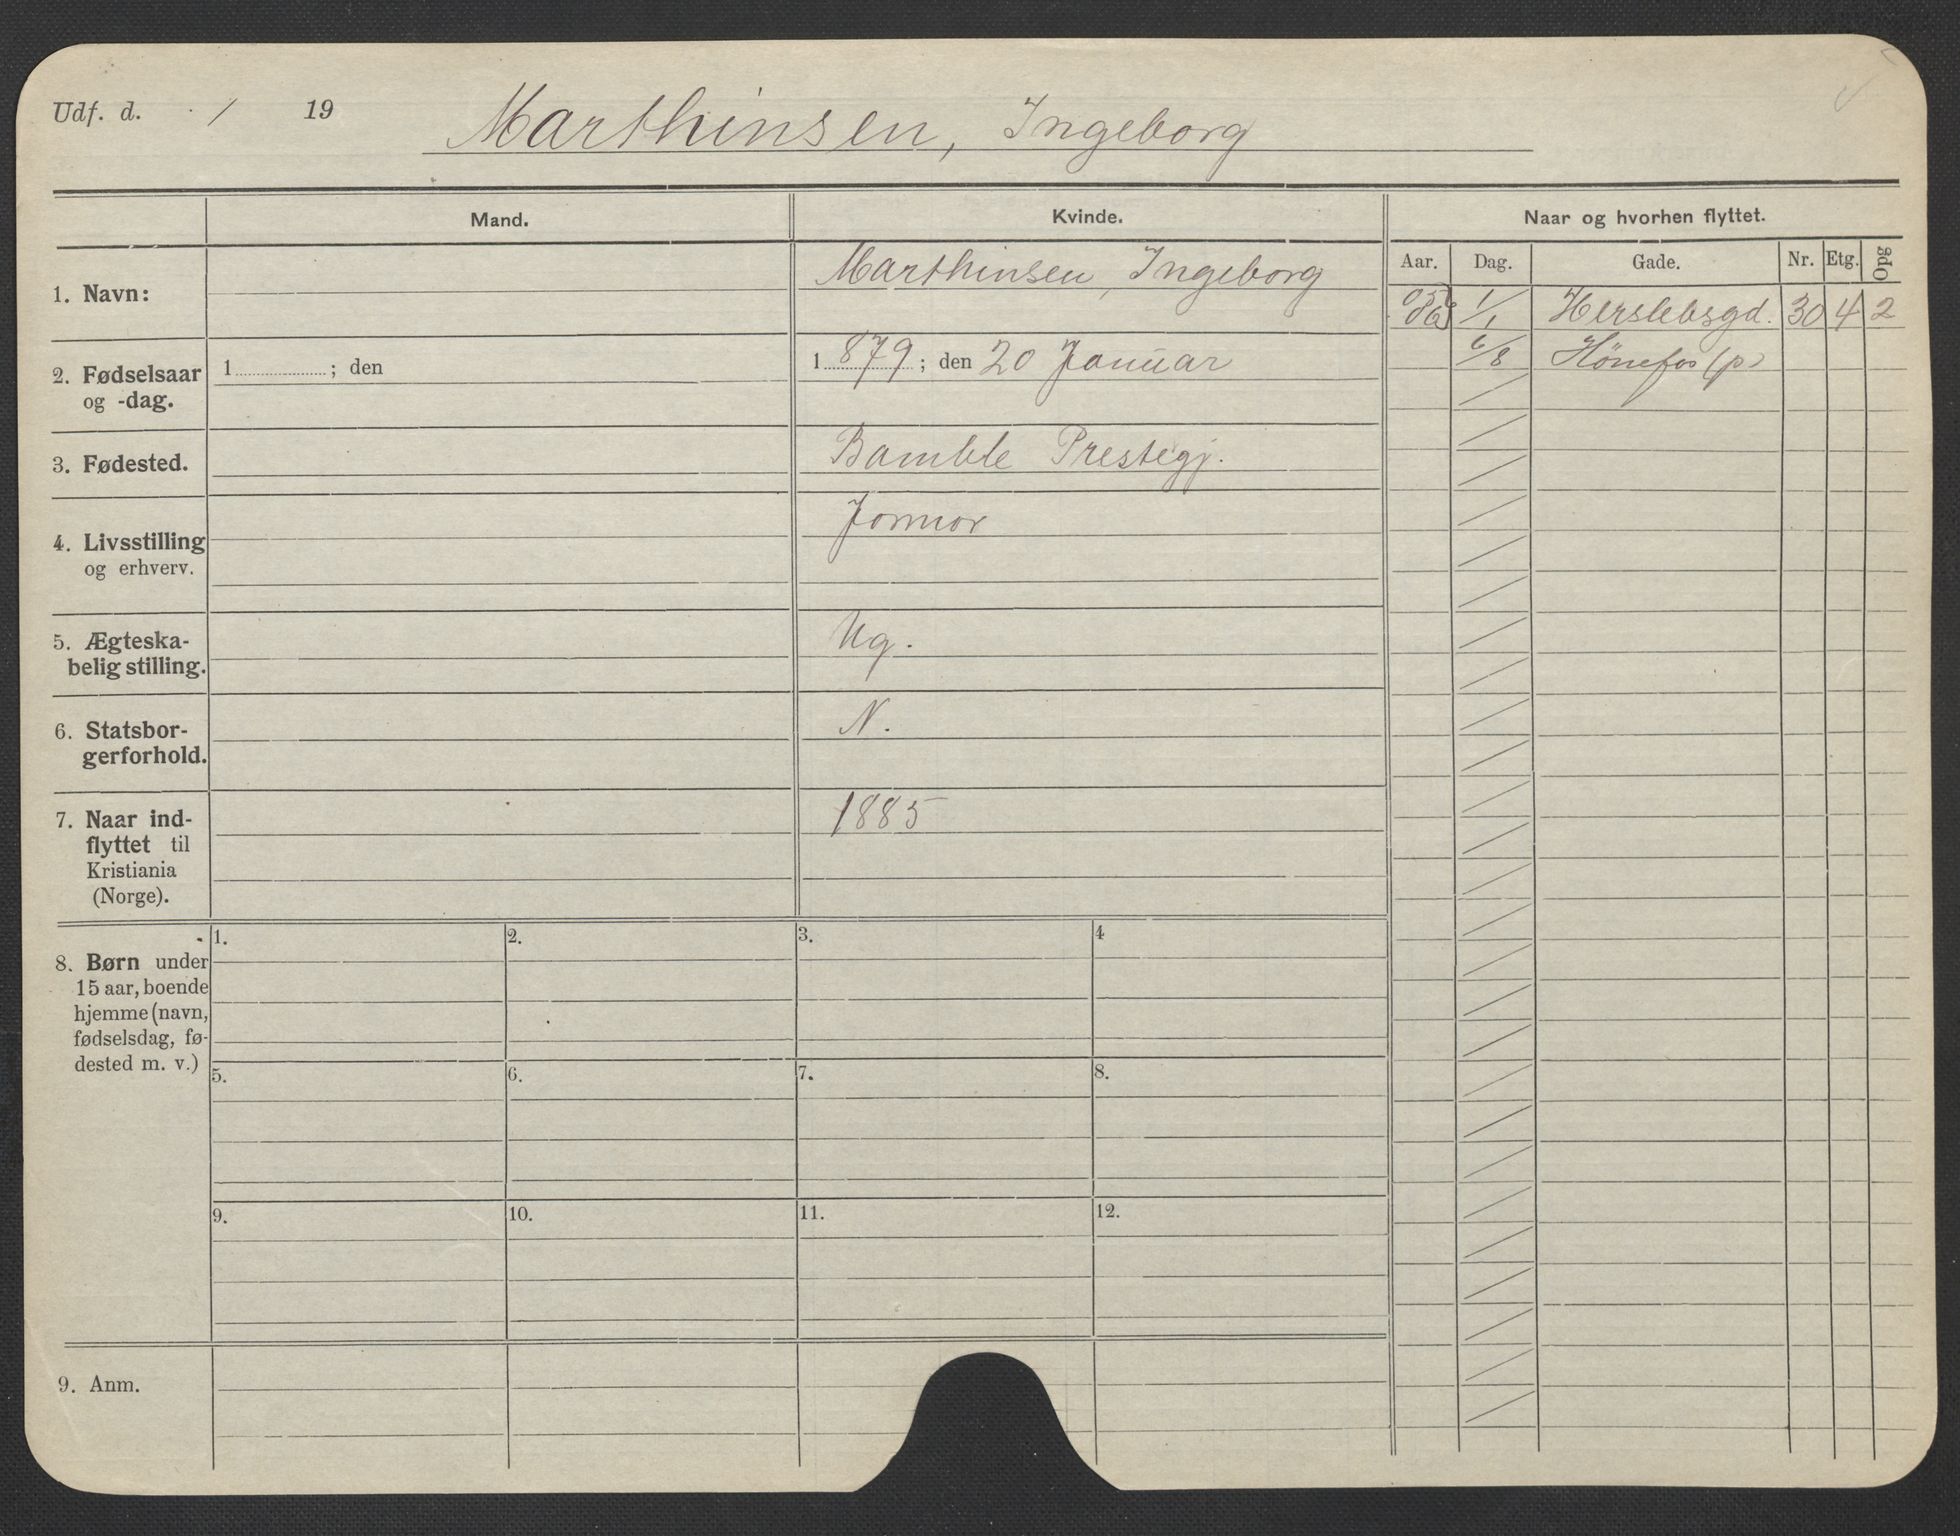 Udf. d. / 19 Marthinsen, Ingeborg
Mand. Kvinde. Naar og hvorhen flyttet.
Aar. Dag. Gade. Nr. Etg. Opg
1. Navn: Marthinsen, Ingeborg
1/1 Herslebsgd. 30 4 2
6/8 Hønefos (p)
2. Fødselsaar 1 ; den 1879 ; den 20 Januar
og -dag.
3. Fødested. Bamble Prestegj.
4. Livsstilling Jormor
og erhverv.
5. Ægteska- Ug.
belig stilling.
6. Statsbor- N.
gerforhold.
7. Naar ind- 1885
flyttet til
Kristiania
(Norge).
1. 2. 3. 4
8. Børn under
15 aar, boende
hjemme (navn,
fødselsdag, fø-
dested m. v.)
5. 6. 7. 8.
9. 10. 11. 12.
9. Anm.